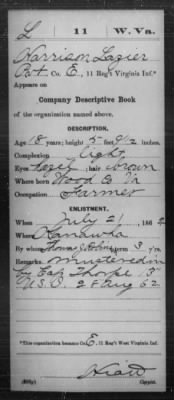 L | 11 | W. Va.
Harrison Lazier
Pvt. Co. E, 11 Reg't Virginia Inf.*
Appears on
Company Descriptive Book
of the organization named above.
DESCRIPTION.
Age 18 years; height 5 feet 9½ inches.
Complexion light
Eyes hazel; hair brown
Where born Wood Co Va
Occupation Farmer
ENLISTMENT.
When July 21, 1862
Where Kanawha
By whom term 3 y'rs.
Remarks mustered in
by Capt Thorpe 15"
U.S.A. 28 Aug 62
*This organization became Co. E, 11 West Virginia Inf.
Hiatt
Copyist.